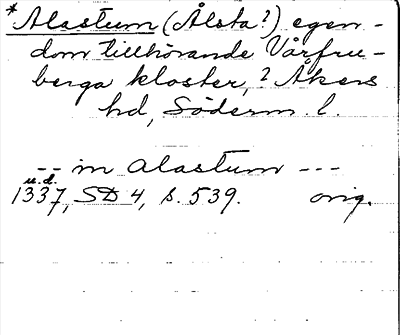 *Alastum (Ålsta?) egen-
dom tillhörande Vårfru-
berga kloster, ? Åkers
hd, Söderm. l.
-- in Alastum ---
u.d.
1337, SD 4, s. 539. orig.